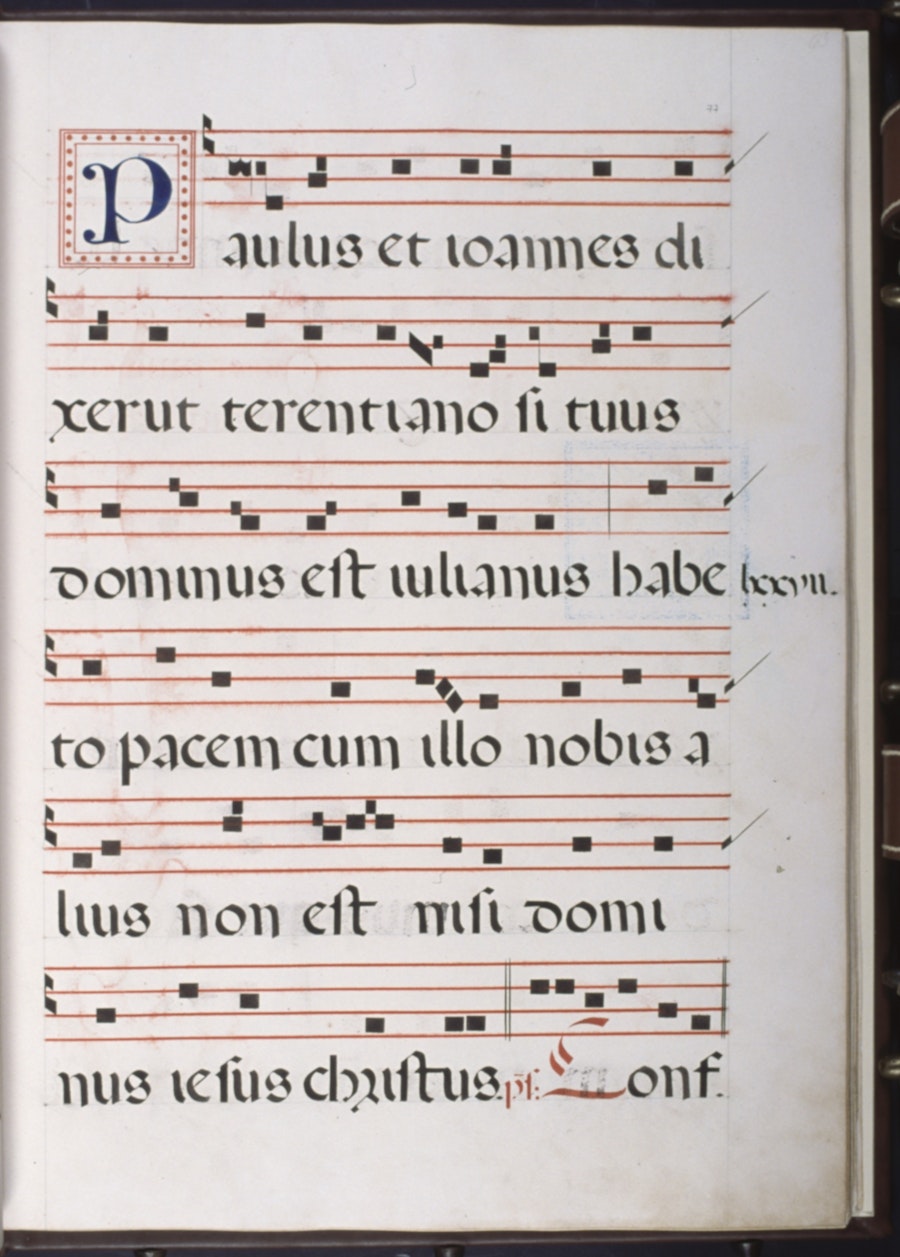 Paulus et ioannes di
xerut terentiano si tuus
dominus est iulianus habe lxxvii.
to pacem cum illo nobis a
lius non est nisi domi
nus iesus christus. ps. Conf.